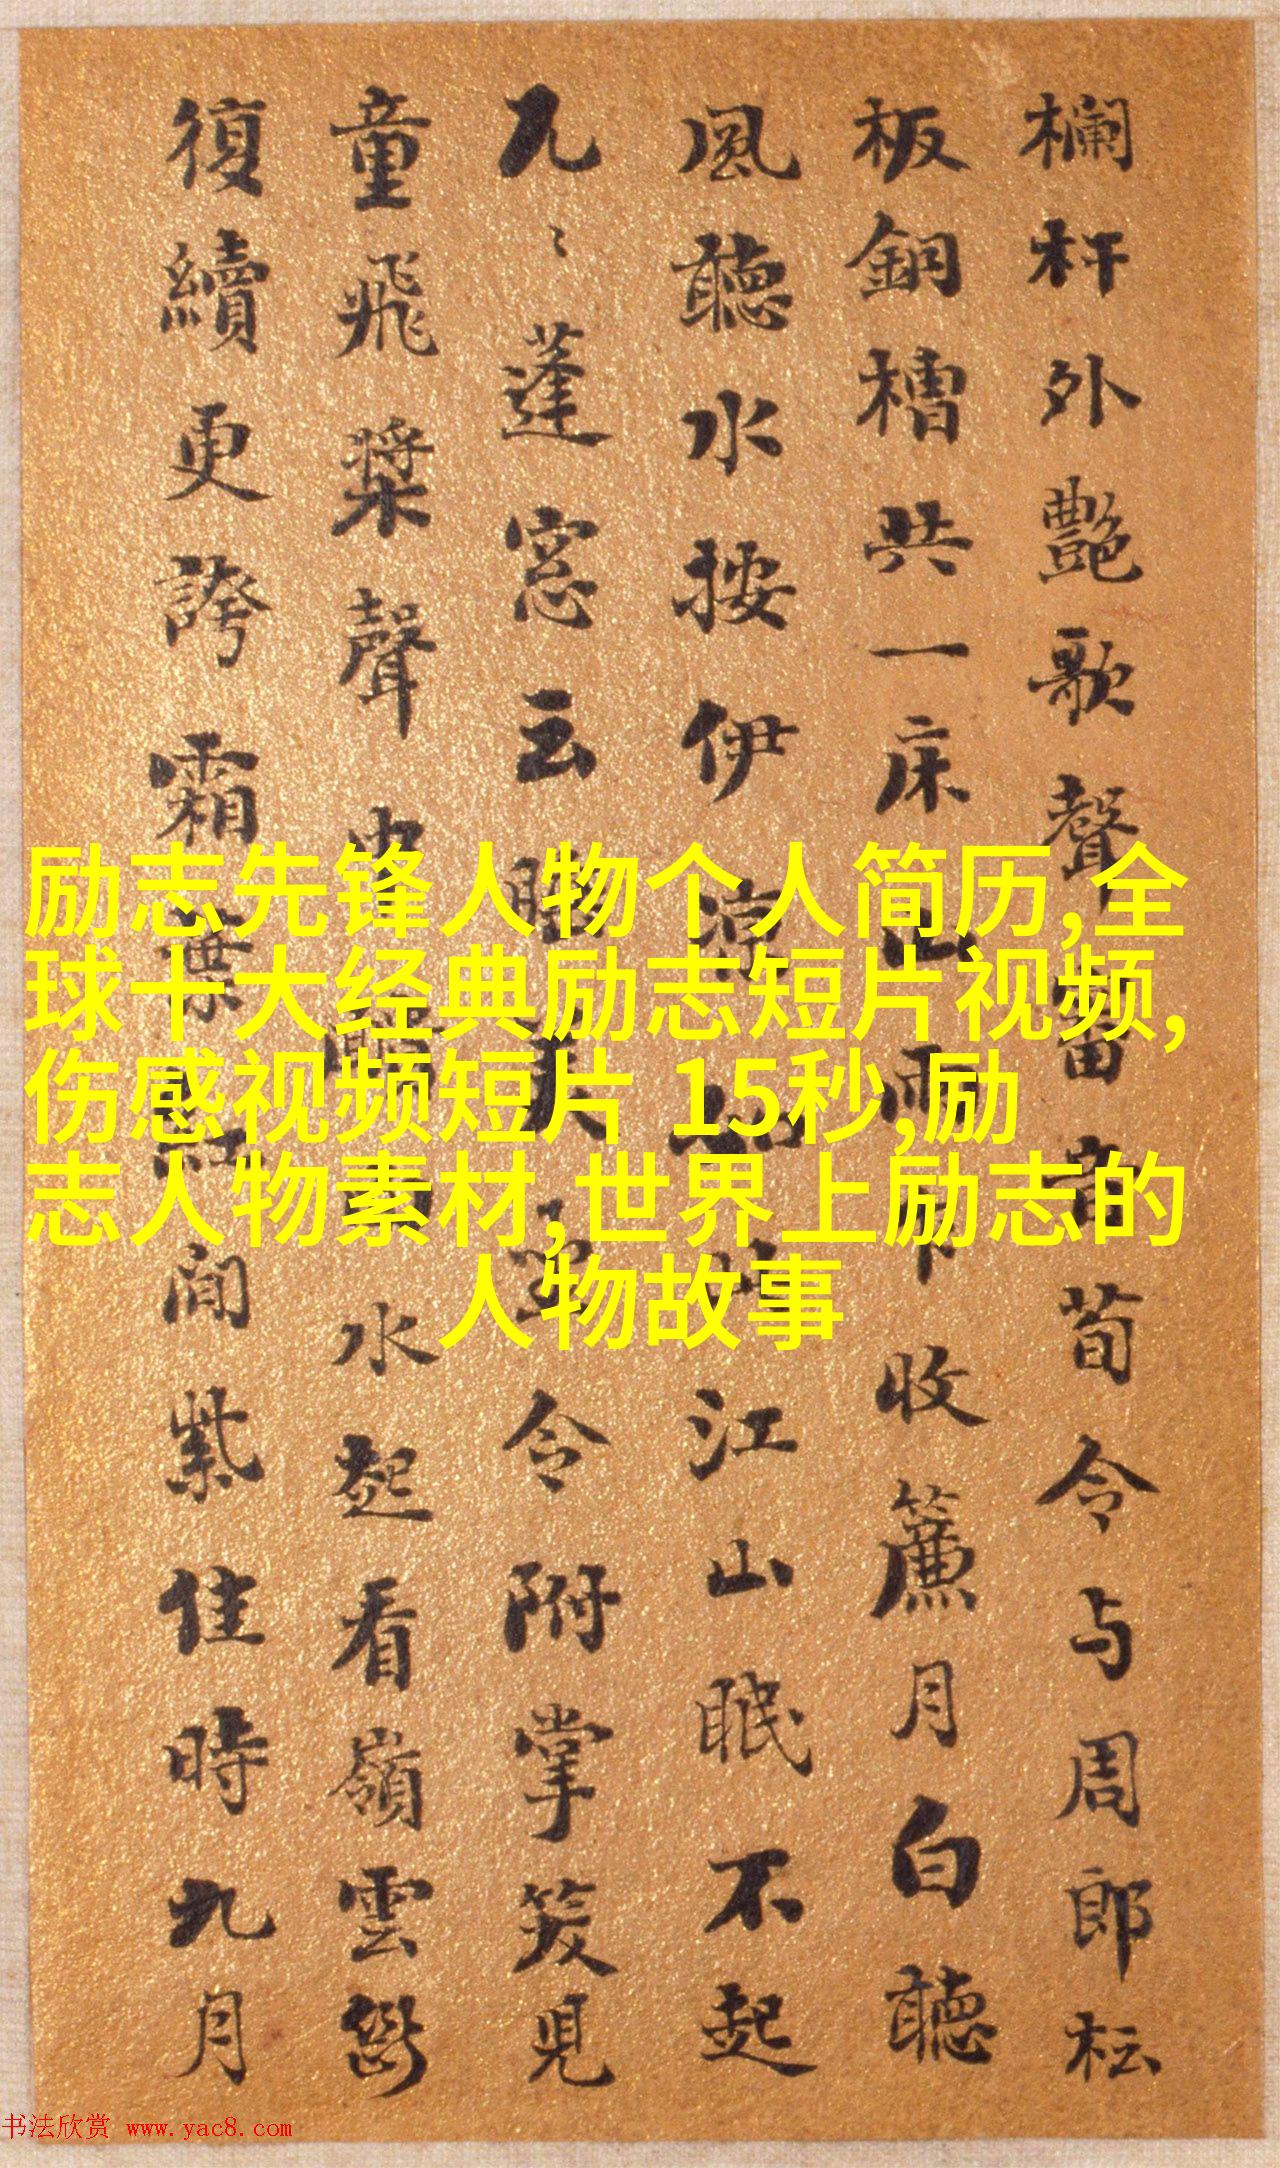 欄杆外艷歌聲留荀令与周郎松
板銅槽共一床山雨下收簾月白聽
風聽水按伊涼江山眠不起
蓬窓云睡美令附掌笑見
童飛槳聲中醒水起看嶺雲
復續更誇霜葉紅間紫佳時九月
励志先锋人物个人简历,全
球十大经典励志短片视频,
伤感视频短片 15秒,励
志人物素材,世界上励志的
人物故事
书法欣赏 www.yac8.com